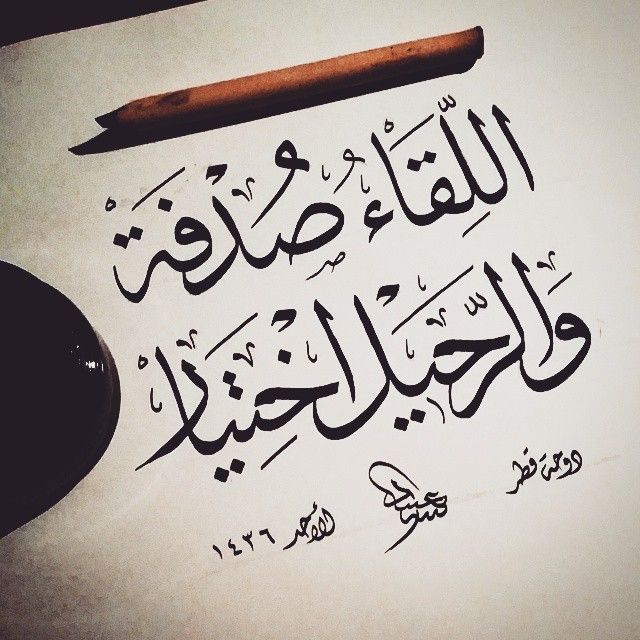 اللِّقَاءُ صُدْفَةْ
وَالرَّحِيَلْ اخْتِيَارْ
دوحة قطر
الأحد ١٤٣٦